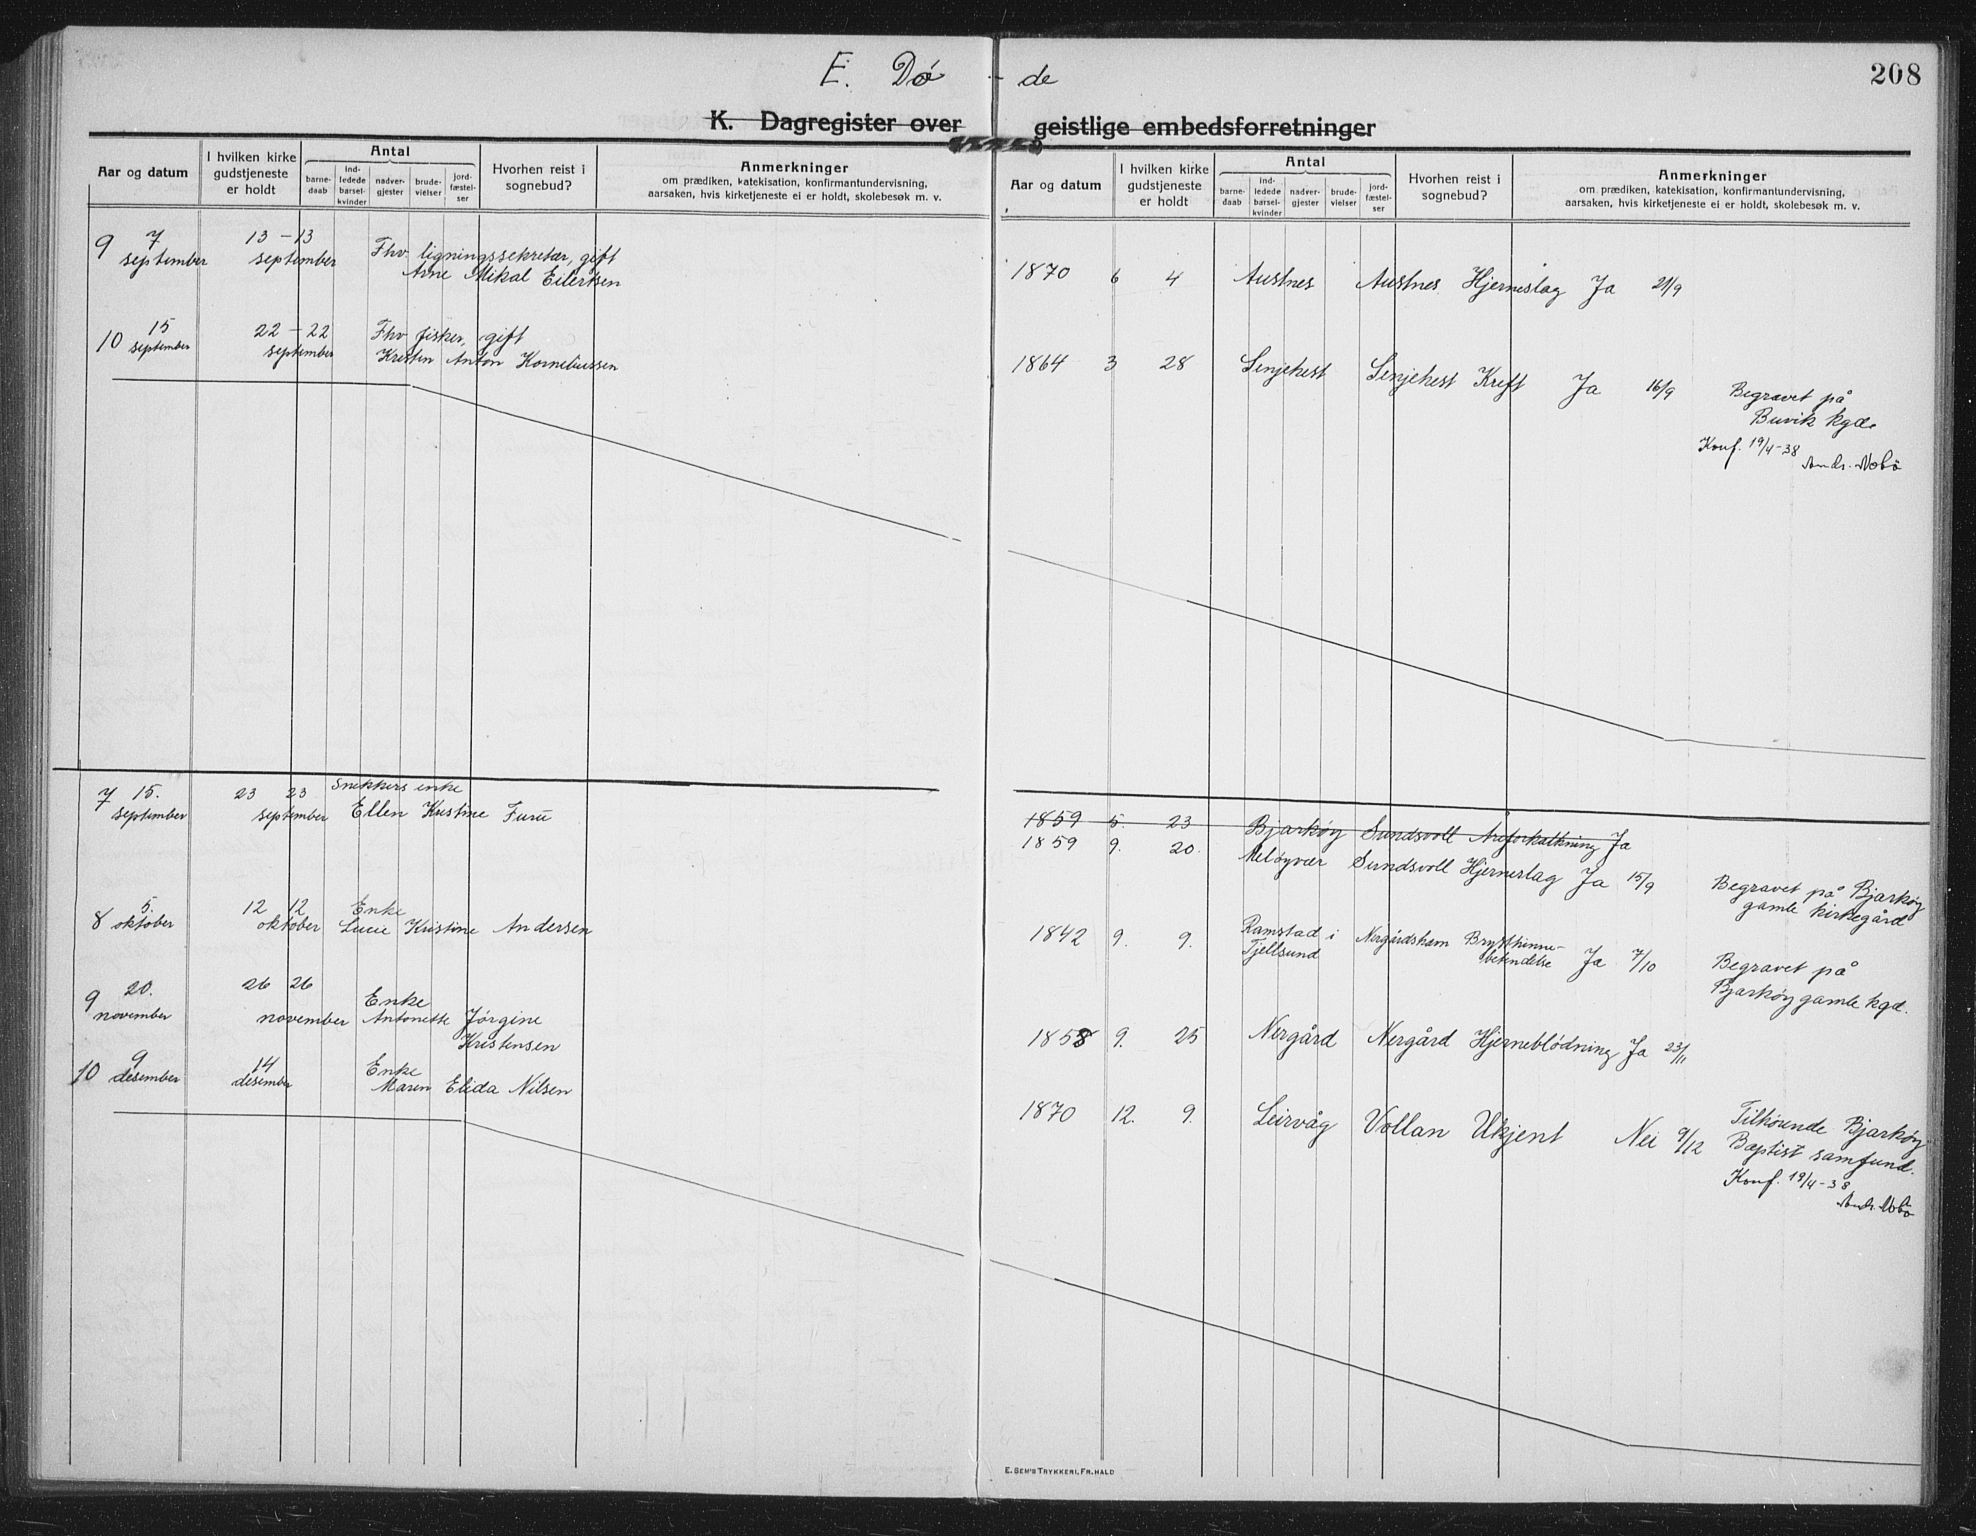 208
E. Dø - de
K. Dagregister over geistlige embedsforretninger
Aar og datum
I hvilken kirke gudstjeneste er holdt
Antal
barne-daab
ind-ledede barsel-kvinder
nadver-gjester
brude-vielser
jord-fæstel-ser
Hvorhen reist i sognebud?
Anmerkninger
om prædiken, katekisation, konfirmantundervisning,
aarsaken, hvis kirketjeneste ei er holdt, skolebesøk m. v.
Aar og datum
I hvilken kirke gudstjeneste er holdt
Antal
barne-daab
ind-ledede barsel-kvinder
nadver-gjester
brude-vielser
jord-fæstel-ser
Hvorhen reist i sognebud?
Anmerkninger
om prædiken, katekisation, konfirmantundervisning,
aarsaken, hvis kirketjeneste ei er holdt, skolebesøk m. v.
9 7 september 13 - 13 september Fhv. ligningssekretær, gift
Arne Mikal Eilertsen
1870 6 4 Austnes Austnes Hjerneslag Ja 21/9
10 15 september 22 - 22 september Fhv fisker, gift
Kristen Anton Korneliussen
1864 3 28 Senjehest Senjehest Kreft Ja 16/9 Begravet på
Buvik kgd.
Konf. 19/4-38
Andr. Nobö
7 15. september 23 23 september Snekkers enke
Ellen Kristine Furu
1859 5. 23 Bjarkøy Sundsvoll Åreforkalkning Ja
1859 9. 20. Meløyvær Sundsvoll Hjerneslag Ja 15/9 Begravet på Bjarkøy
gamle kirkegård
8 5. oktober 12 12 oktober Enke
Lucie Kristine Andersen
1842 9. 9. Ramstad i Tjellsund Nergårdshamn Brysthinne-
betendelse Ja 7/10 Begravet på
Bjarkøy gamle kgd.
9 20. november 26 26 november Enke
Antonette Jørgine
Kristensen
1858 9. 25 Nergård Nergård Hjerneblödning Ja 23/11
10 9 desember 14 desember Enke
Maren Elida Nilsen
1870 12. 9. Leirvåg Vollan Ukjent Nei 9/12 Tilhørende Bjarkøy
Baptist samfund.
Konf. 19/4-38
Andr. Nobö
E. SEM'S TRYKKERI, FR.HALD